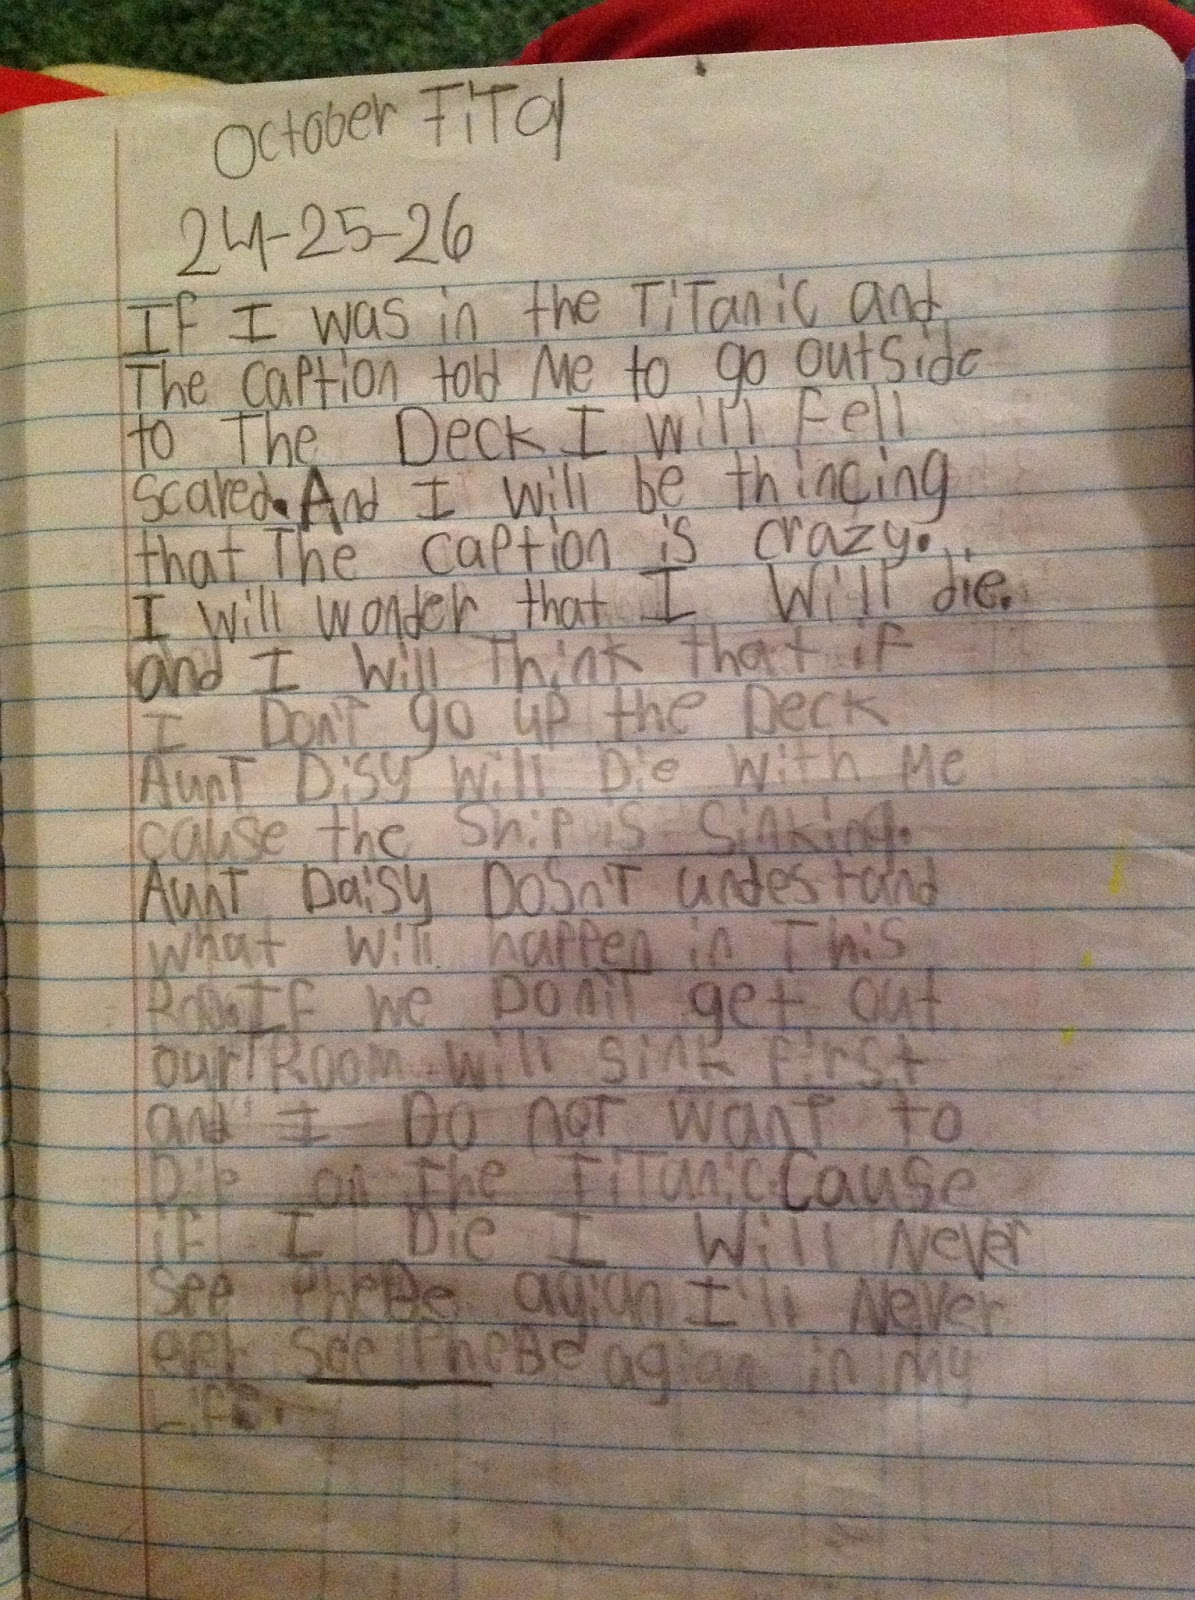 October TiTal
24-25-26
If I was in the TiTanic and
The caption told Me to go outside
to The Deck I will Fell
scared. And I will be thincing
that The caption is crazy.
I will wonder that I will die.
and I will Think that if
I Don't go up the Deck
Aunt Disy will Die with Me
cause the Ship is sinking.
Aunt Daisy DOSn'T undestand
what will happen in This
If we Don't get out
our Room will sink first
and I Do noT want to
Die on The TiTanic. Cause
if I Die I Will Never
See PheBe agian I'll Never
see PheBe agian in My
Life.